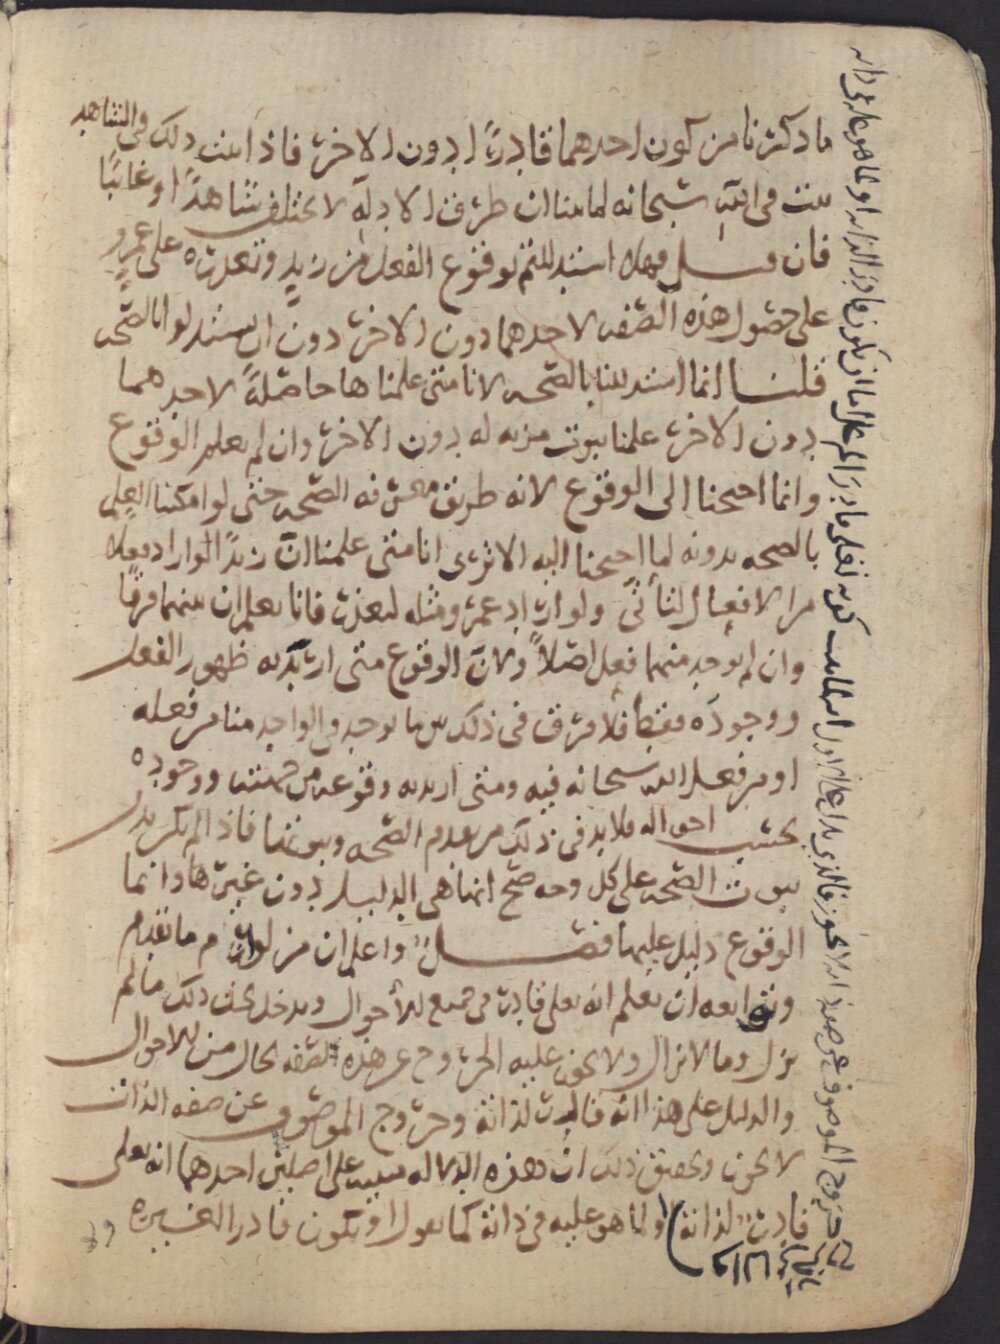 ما ذكرنا من كون احدهما قادرًا دون الاخر فاذا ثبت ذلك في الشاهد
ثبت في الله سبحانه لما بينا ان طرق الادلة لا تختلف شاهدًا او غائبًا
فان قيل فهلا استدللتم بوقوع الفعل من زيدٍ وتعذره على عمروٍ
على حصول هذه الصفه لاحدهما دون الاخر دون ان تستدلوا بالصحه
قلنا انما استدللنا بالصحه لانا متى علمناها حاصلةً لاحدهما
دون الاخر علمنا ثبوت مزيه له دون الاخر وان لم نعلم الوقوع
وانما احتجنا الى الوقوع لانه طريق معرفه الصحه حتى لو امكننا العلم
بالصحه بدونه لما احتجنا اليه الا ترى انا متى علمنا ان زيدًا لو اراد فعلا
من الافعال لتأتى ولو اراد عمرو مثله لتعذر فانا نعلم ان بينهما فرقًا
وان لم يوجد منهما فعل اصلاً ولان الوقوع متى اريد به ظهور الفعل
ووجوده فقط فلا فرق في ذلك بين ما يوجد في الواحد منا من فعله
او من فعل الله سبحانه فيه ومتى اريد به وقوعه من جهته ووجوده
بحسب احواله فلا بد في ذلك من تقدم الصحه وثبوتها فاذا لم يكن بد من
ثبوت الصحه على كل وجه صح انها هي الدليل دون غيرها وانما
الوقوع دليل عليها فصل واعلم ان من لوازم ما تقدم
وتوابعه ان تعلم انه تعلى قادر في جميع الاحوال ويدخل تحت ذلك ما لم
يزل وما لا يزال ولا يجوز عليه الخروج عن هذه الصفه بحال من الاحوال
والدليل على هذا انه قادر لذاته وخروج الموصوف عن صفه الذات
لا يجوز وتحقيق ذلك ان هذه الدلاله مبنيه على اصلين احدهما انه تعلى
قادر لذاته او لما هو عليه في ذاته كما نقول او يكون قادرا لغيره